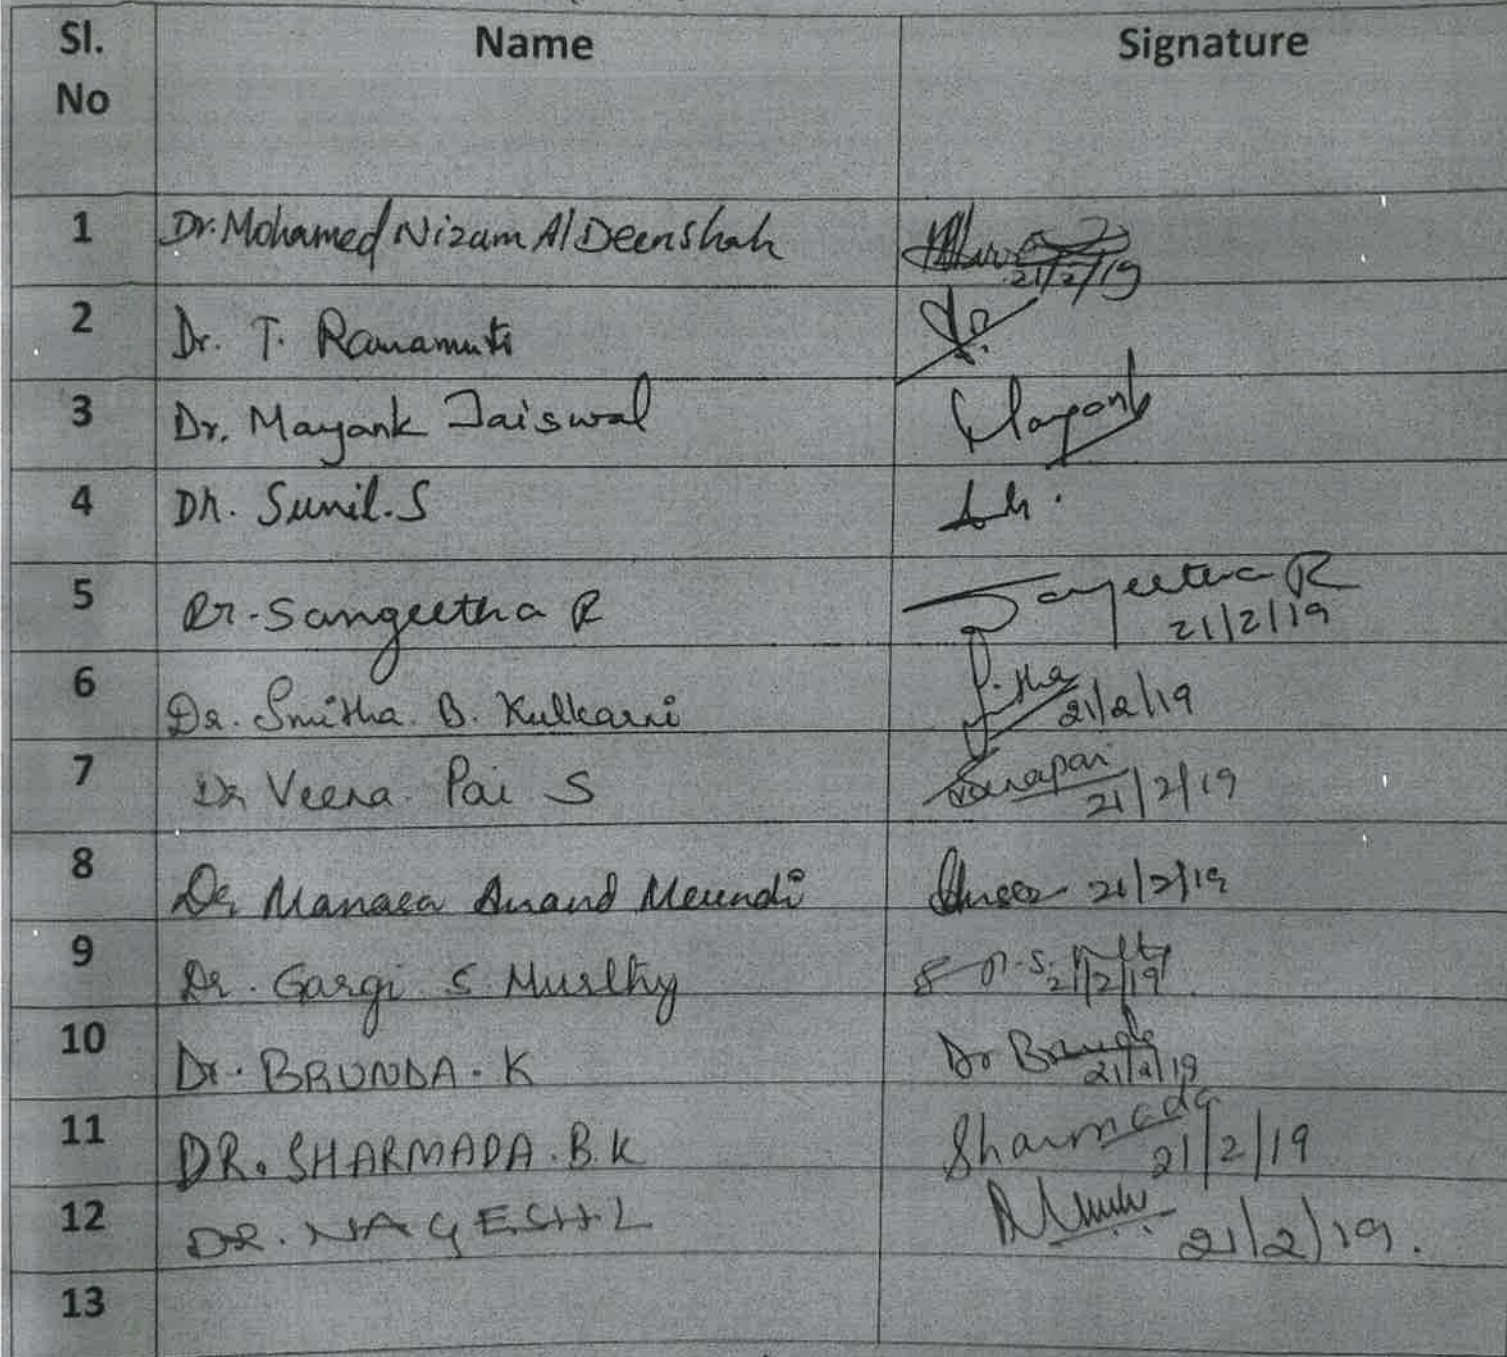 Sl. No Name Signature
1 Dr. Mohamed Nizam Al Deenshah 21/2/19
2 Dr. T.
3 Dr. Mayank Jaiswal Mayank
4 Dr. Sunil. S
5 Dr. Sangeetha R Sangeetha R
21/2/19
6 Dr. Smitha. B. Kulkarni 21/2/19
7 Dr Veena. Pai S Veenapai 21/2/19
8 Dr Manasa Anand Meundi 21/2/19
9 Dr. Gargi S Murthy 21/2/19
10 Dr. BRUNDA. K Dr Brunda
21/2/19
11 DR. SHARMADA. B. K Sharmada
21/2/19
12 DR. NAGESH.L 21/2/19.
13